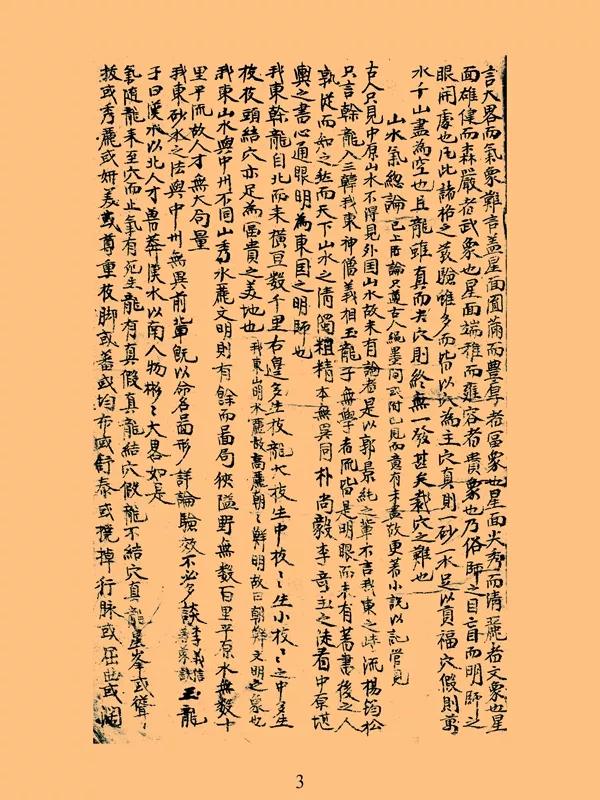 言大畧而氣象難言盖星面圓而豊厚者冨象也星面尖秀而清麗者文象也星
面雄健而森嚴者武象也星面端雅而雍容者貴象也乃俗師之目盲而明師之
眼開處也凡此諸格之驗雖多而皆以穴為主穴真則一砂一水足以福穴假則萬
水千山盡為空也且龍雖真而失穴則終無一發甚矣裁穴之難也
山水氣總論 已上所論只道古人間或附己見而竟有未盡故更著小説以記管見
古人只見中原山水不得見外国山水故未有論者是以郭景純之輩不言我東之峙流楊筠松
只言榦龍入三韓我東神僧義相玉龍子無學者流皆是明眼而未有著書後之人
孰從而知之然而天下山水之清濁粗精本無異同朴尚毅李竒玉之徒看中原堪
輿之書心通眼明為東国之明師也
我東榦龍自北而来横亘数千里右邊多生枝龍大枝生中枝〻〻生小枝〻〻之中多生
枝枝頭結穴亦足為冨貴之美地也 我東山明水麗故高麗朝〻鮮明故曰朝鮮文明之象也
我東山水與中州不同山秀水麗文明則有餘而局狹隘野無数百里平原水無数十
里平流故人才無大局量
我東砂水之法與中州無異前輩既以命名面形詳論驗效不必多談 李義信 玉龍
子曰漢水以北人才莽漢水以南人物彬〻大畧如是
氣隨龍来至穴而止氣有死生龍有真假真龍結穴假龍不結穴真龍星峯或聳〻
拔或秀麗或妍美或尊重枝脚或蕃或均布或舒泰或橈掉行脉或屈曲或闊
3